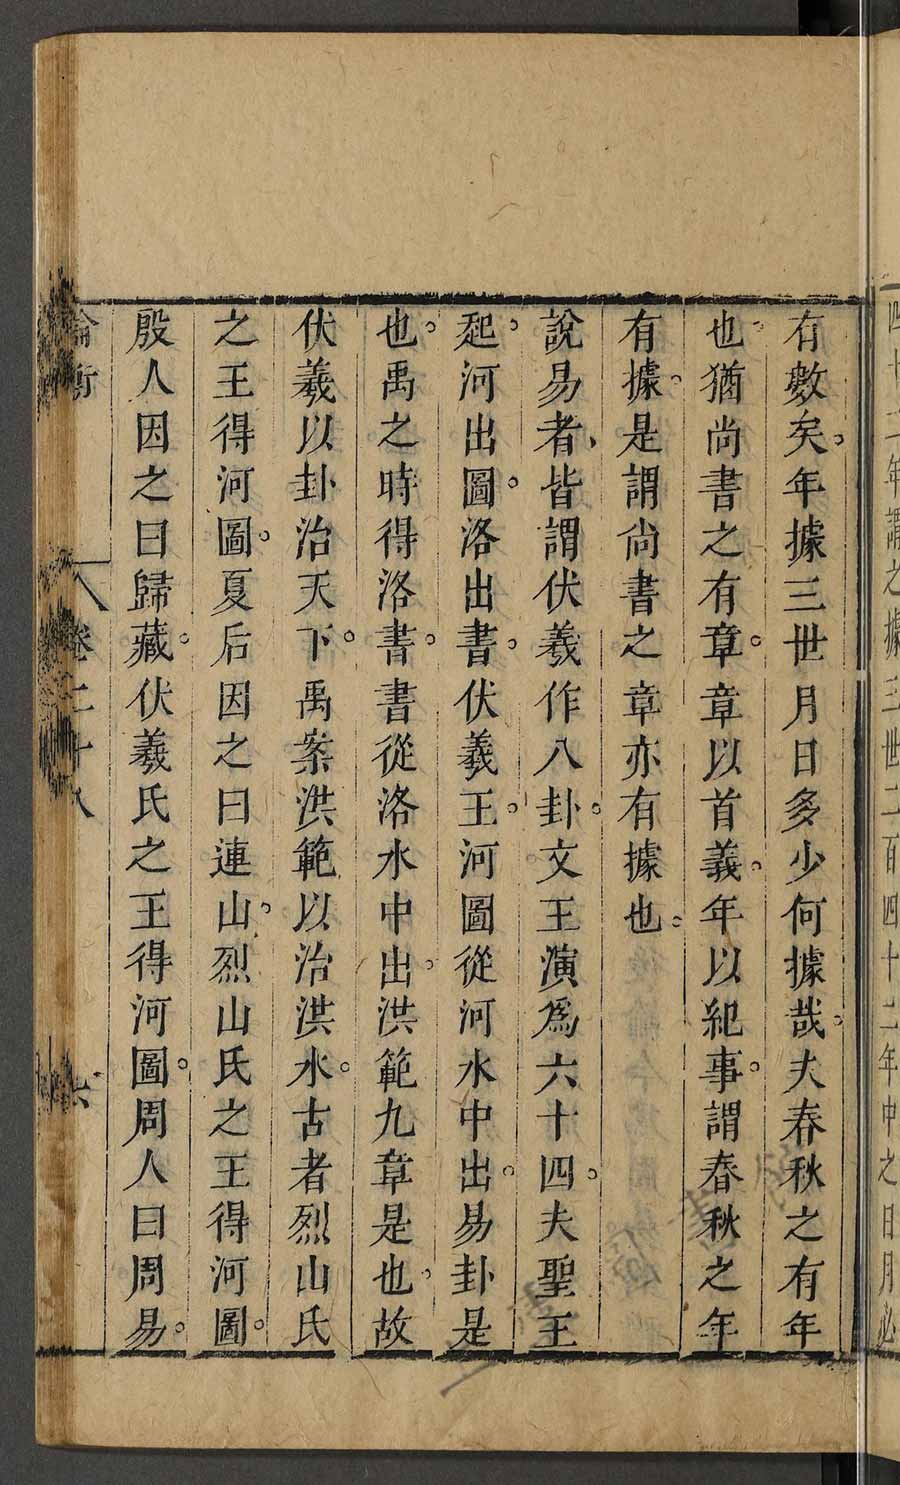 四十二年謂之據三世二百四十二年中之日月必
有數矣。年據三世月日多少何據哉。夫春秋之有年
也。猶尚書之有章。章以首義。年以紀事。謂春秋之年
有據。是謂尚書之章亦有據也。
說易者、皆謂伏羲作八卦。文王演爲六十四。夫聖王
起。河出圖。洛出書。伏羲王。河圖從河水中出。易卦是
也。禹之時得洛書。書從洛水中出。洪範九章是也。故
伏羲以卦治天下。禹案洪範以治洪水。古者烈山氏
之王得河圖。夏后因之曰連山。烈山氏之王得河圖。
殷人因之曰歸藏。伏羲氏之王得河圖。周人曰周易。
論衡 卷二十八 六